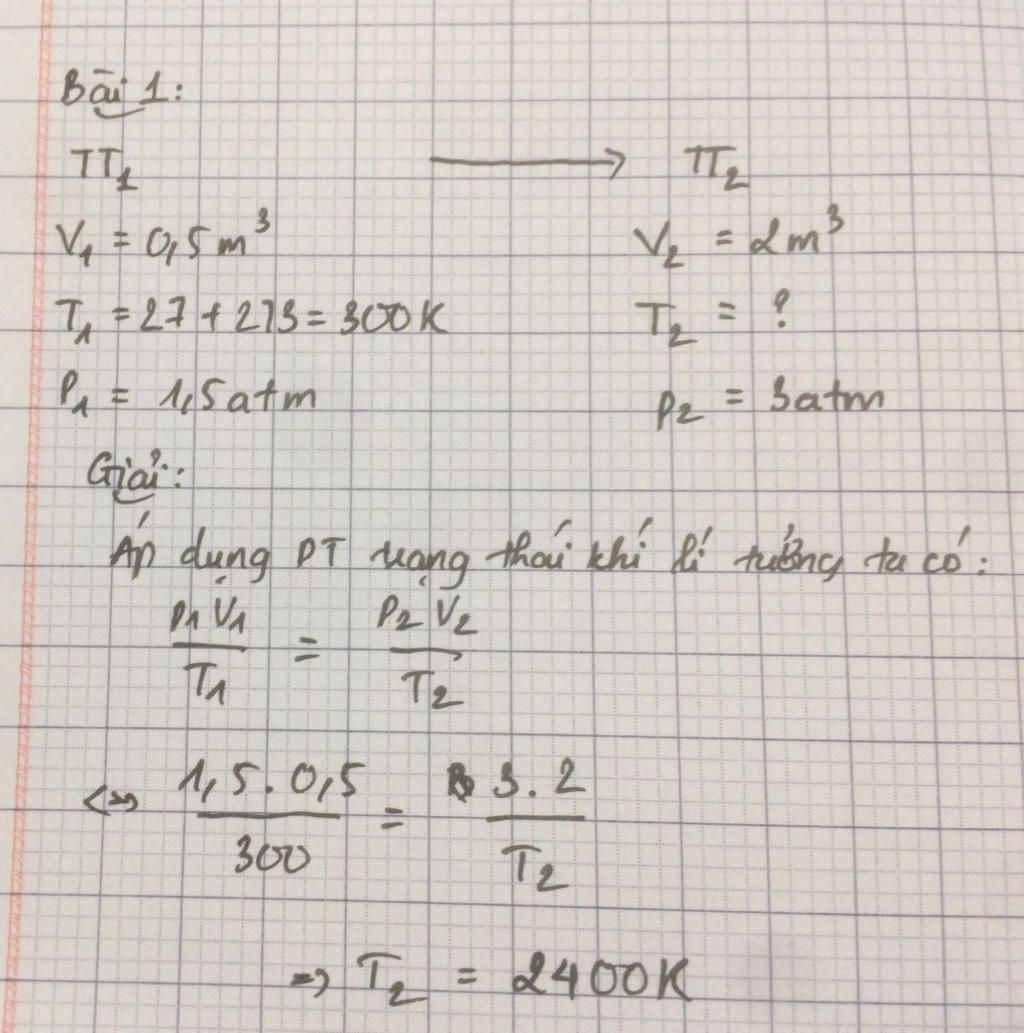 Bài 1:
TT₁ → TT₂
V₁ = 0,5m³ V₂ = 2m³
T₁ = 27 + 273 = 300K T₂ = ?
P₁ = 1,5atm P₂ = 3atm
Giải:
Áp dụng PT trạng thái khí lí tưởng ta có:
P₁V₁/T₁ = P₂V₂/T₂
<=> 1,5.0,5/300 = 3.2/T₂
=> T₂ = 2400K